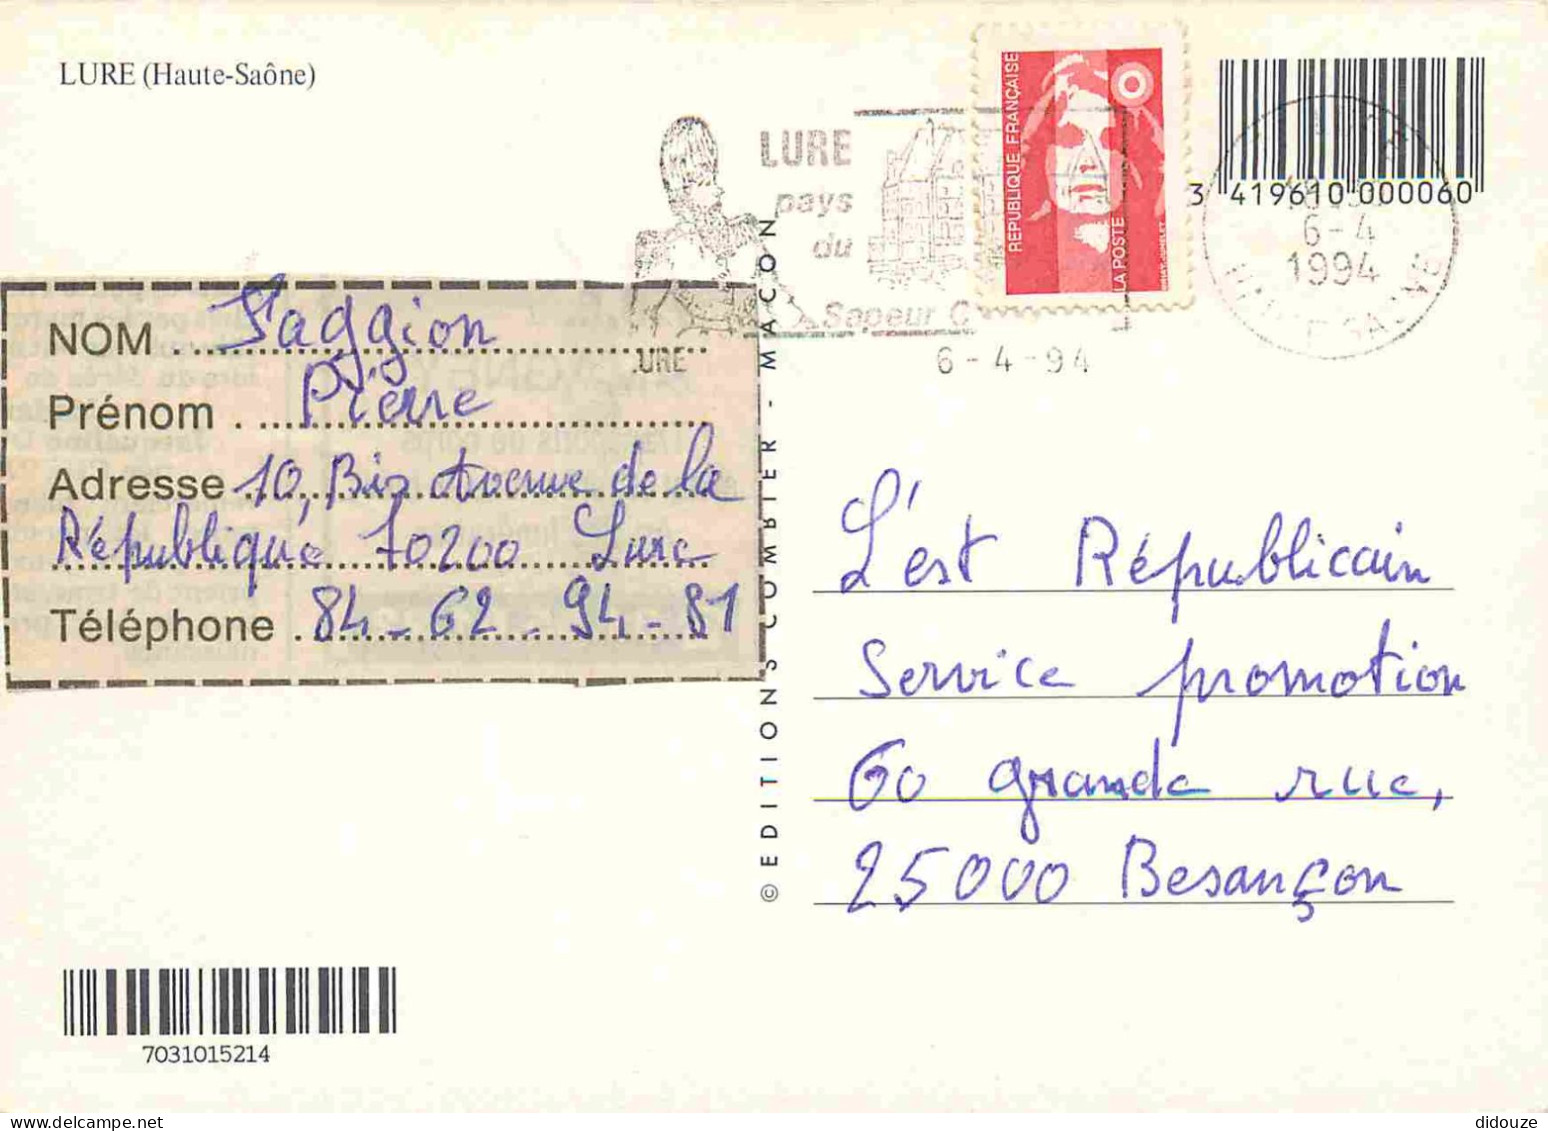 LURE (Haute-Saône)
LURE
pays
du
Sapeur C
6-4-94
RÉPUBLIQUE FRANÇAISE
LA POSTE
3 419610 000060
6-4
1994
NOM Saggion
Prénom Pierre
Adresse 10, Bis Avenue de la
République 70200 Lure
Téléphone 84-62-94-81
© EDITIONS COMBIER - MACON
L'est Républicain
Service promotion
60 grande rue,
25000 Besançon
7031015214
didouze